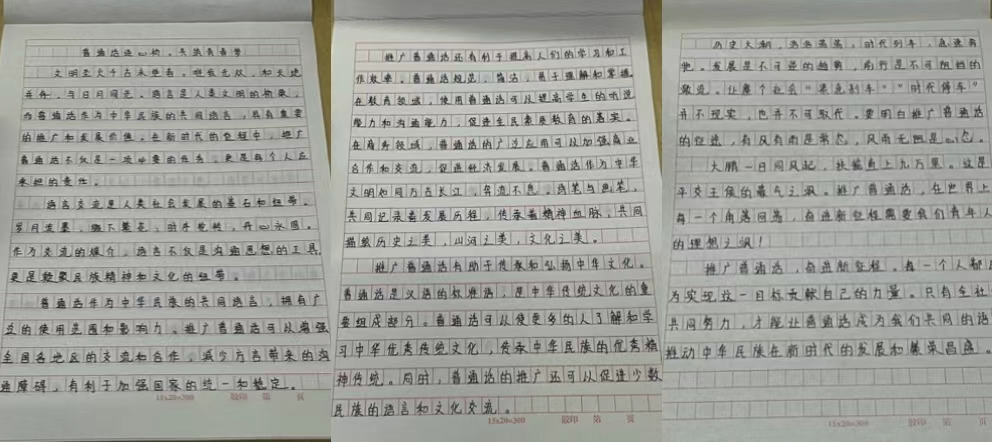 普通话连心桥,
文明
语言是人类文明的
而普通话作为中华民族的共同语言,具有重要
的推广和发展价值。在新时代的征程中,推广
普通话不仅是一项必要的任务,更是每个人应
承担的责任。
语言交流是人类社会发展的基石和纽带。
作为交流的媒介,语言不仅是沟通思想的工具,
更是凝聚民族精神和文化的纽带。
普通话作为中华民族的共同语言,拥有广
泛的使用范围和影响力。推广普通话可以增强
全国各地民的交流和合作,减少方言带来的沟
通障碍,有利于加强国家的统一和稳定。
15x20=300 第 页
推广普通话还有利于提高人们的学习和工
作效率。普通话规范、简洁,易于理解和掌握。
在教育领域,使用普通话可以提高学生的听说
能力和沟通能力,促进全民素质教育的落实。
在商务领域,普通话的广泛应用可以加强商业
合作和交流,促进经济发展。普通话作为中华
文明如同万古长江,奔流不息。
共同记录着发展历程,传承着精神血脉,共同
描绘历史之美,山河之美,文化之美。
推广普通话有助于传承和弘扬中华文化。
普通话是汉语的标准语,是中华传统文化的重
要组成部分。普通话可以使更多的人了解和学
习中华优秀传统文化,传承中华民族的优秀精
神传统。同时,普通话的推广还可以促进少数
民族的语言和文化交流。
15x20=300 第 页
历史大潮,浩浩荡荡,时代列车,
发展是不可逆的趋势,前行是不可阻挡的
激流。让整个社会“ ”“时代停车”
并不现实,也并不可取。要明白推广普通话
的征途,有风有雨是常态,风雨无阻是心态。
大鹏一日同风起,扶摇直上九万里。这是
平交王侯的豪气之 。推广普通话,在世界上
每一个角落回荡,奋进新征程需要我们青年人
的理想之 !
推广普通话,奋进新征程。每一个人都应
为实现这一目标贡献自己的力量。只有全社
共同努力,才能让普通话成为我们共同的语
推动中华民族在新时代的发展和繁荣昌盛。
15x20=300 第 页